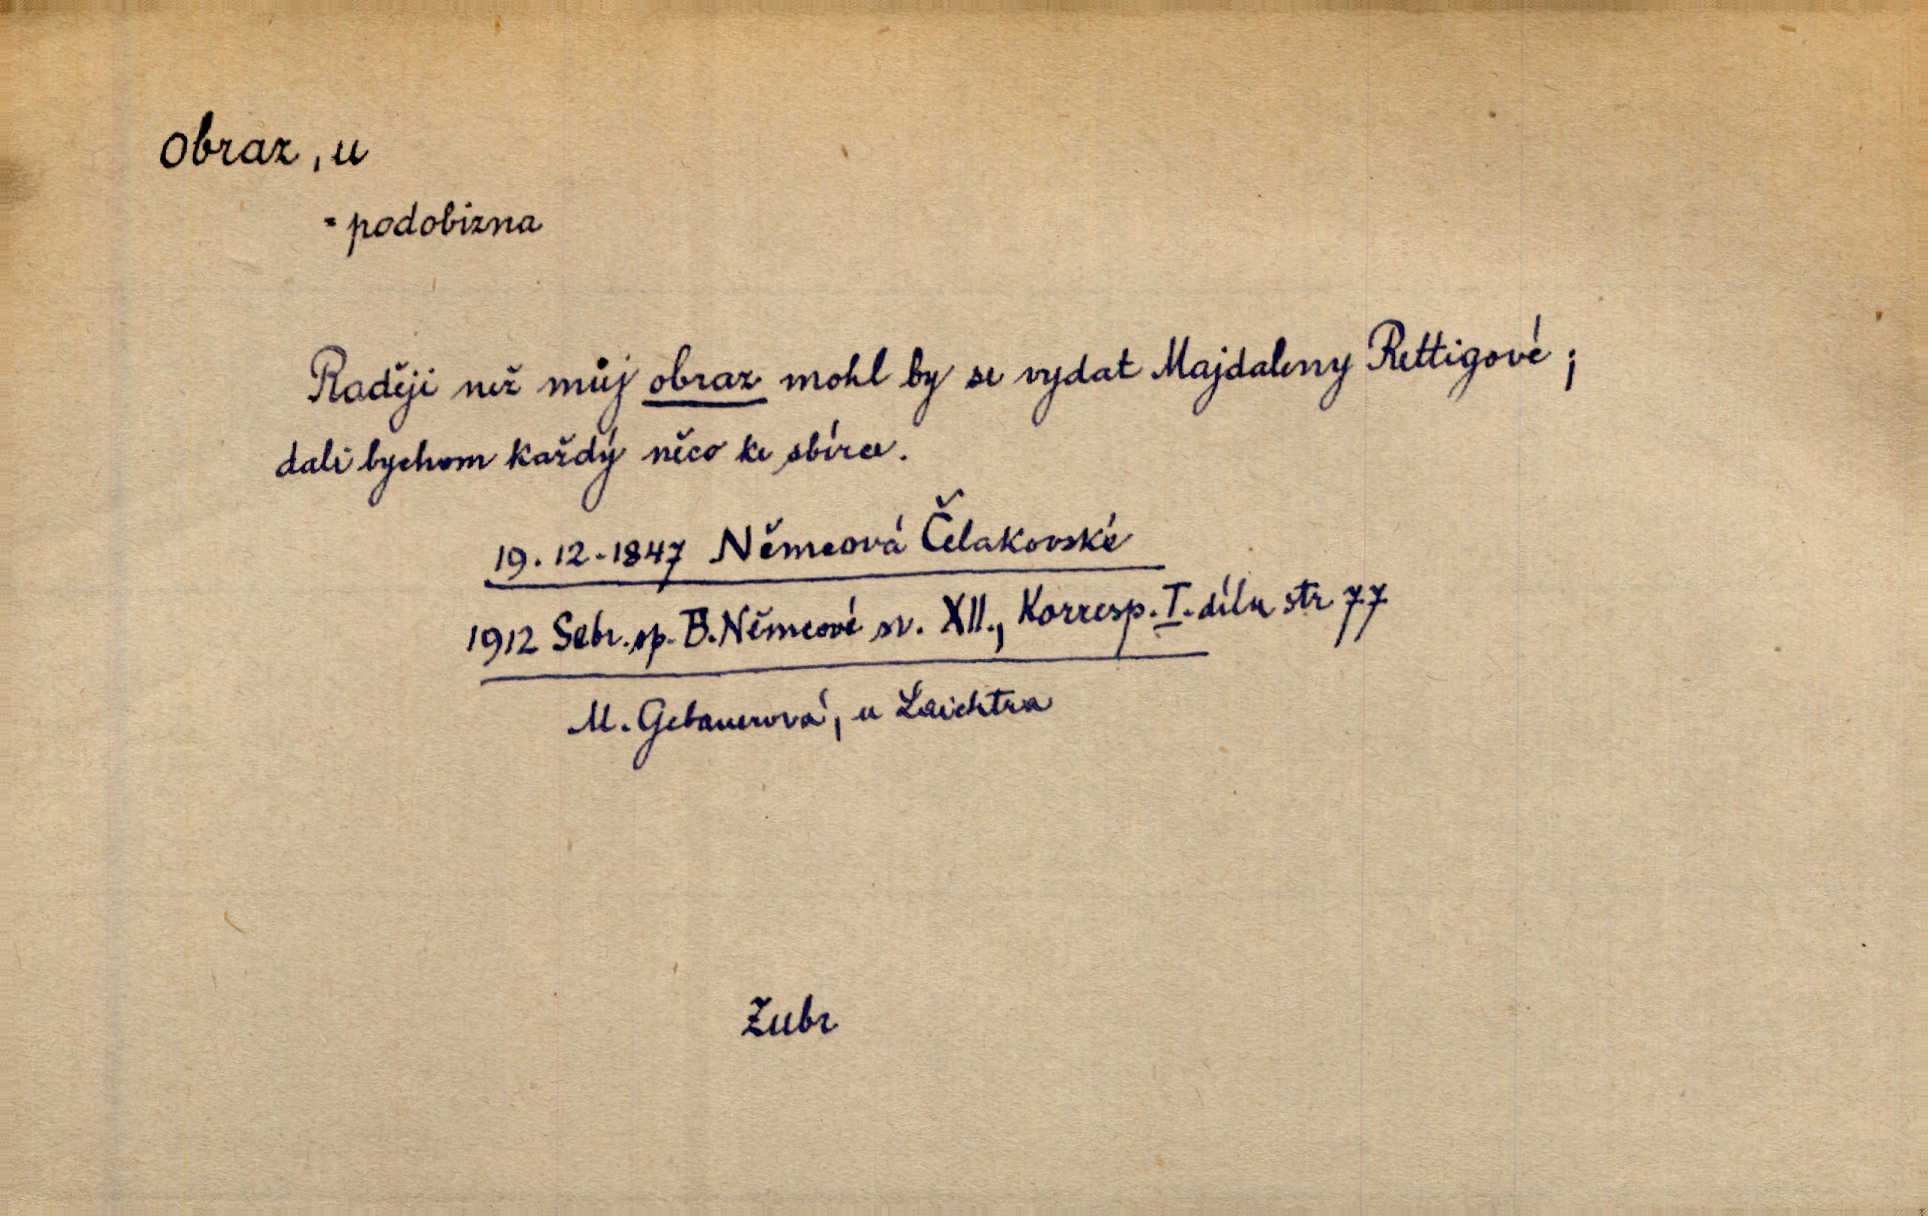 obraz, u
= podobizna
Raději než můj obraz mohl by se vydat Majdaleny Rettigové;
dali bychom každý něco ke sbírce.
19.12.1847 Němcová Čelakovské
1912 Sebr. sp. B. Němcové sv. XII., Korresp. I. dílu str 77
M. Gebauerová, u Laichtra
Zubr